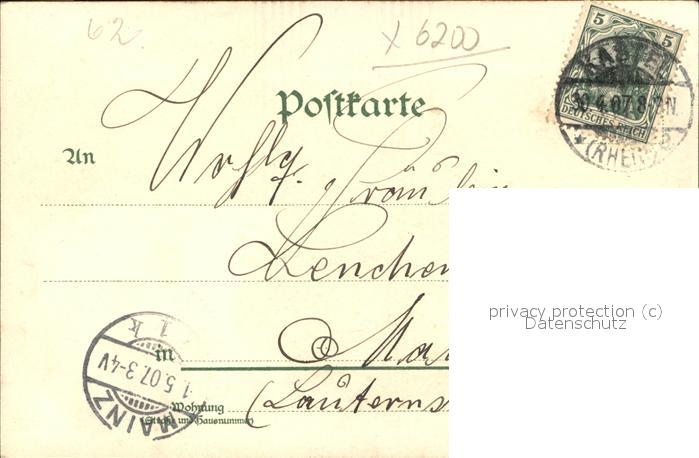 62.
x 6200
5 5
DEUTSCHES REICH
KASTEL
30.4.07.8-9N.
*(RHEIN)
Postkarte
An Wohlg. Fräulein
Lenchen
privacy protection (c)
Datenschutz
in
(Lauterns
Wohnung
(Straße und Hausnummer)
MAINZ
1.5.07.3-4V
1 k